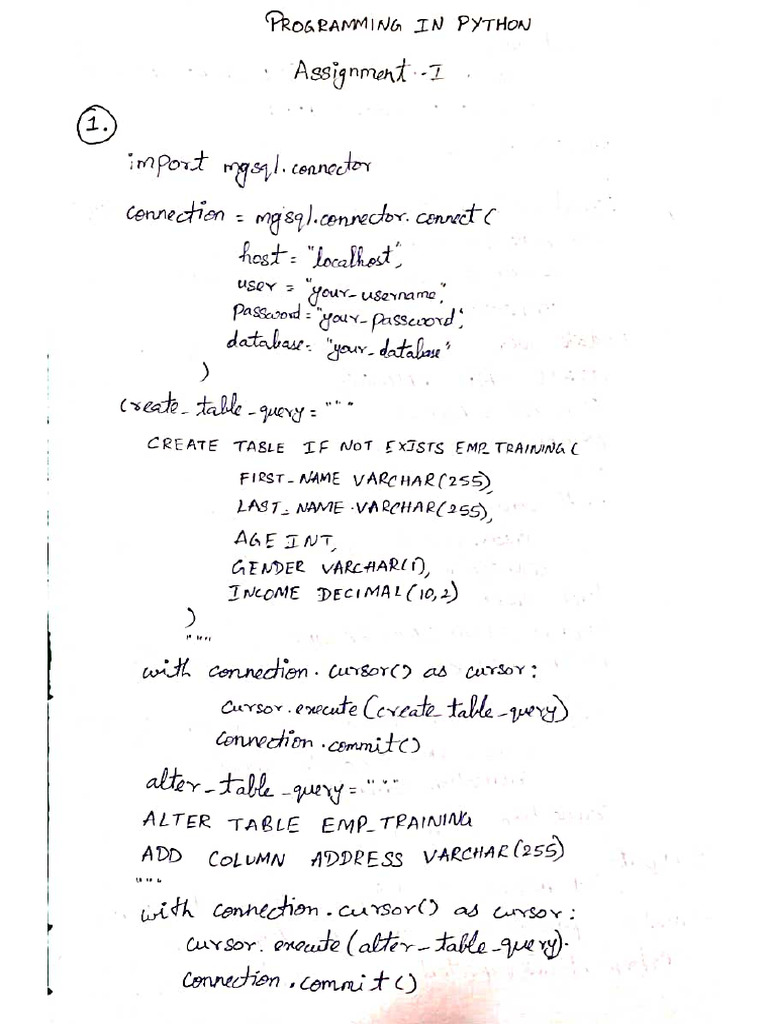 PROGRAMMING IN PYTHON
Assignment - I
1.
import mysql.connector
connection = mysql.connector.connect(
host = "localhost",
user = "your_username",
password = "your_password",
database = "your_database"
)
create_table_query = """
CREATE TABLE IF NOT EXISTS EMP_TRAINING (
FIRST_NAME VARCHAR(255),
LAST_NAME VARCHAR(255),
AGE INT,
GENDER VARCHAR(1),
INCOME DECIMAL(10,2)
)
"""
with connection.cursor() as cursor:
cursor.execute(create_table_query)
connection.commit()
alter_table_query = """
ALTER TABLE EMP_TRAINING
ADD COLUMN ADDRESS VARCHAR(255)
"""
with connection.cursor() as cursor:
cursor.execute(alter_table_query).
connection.commit()